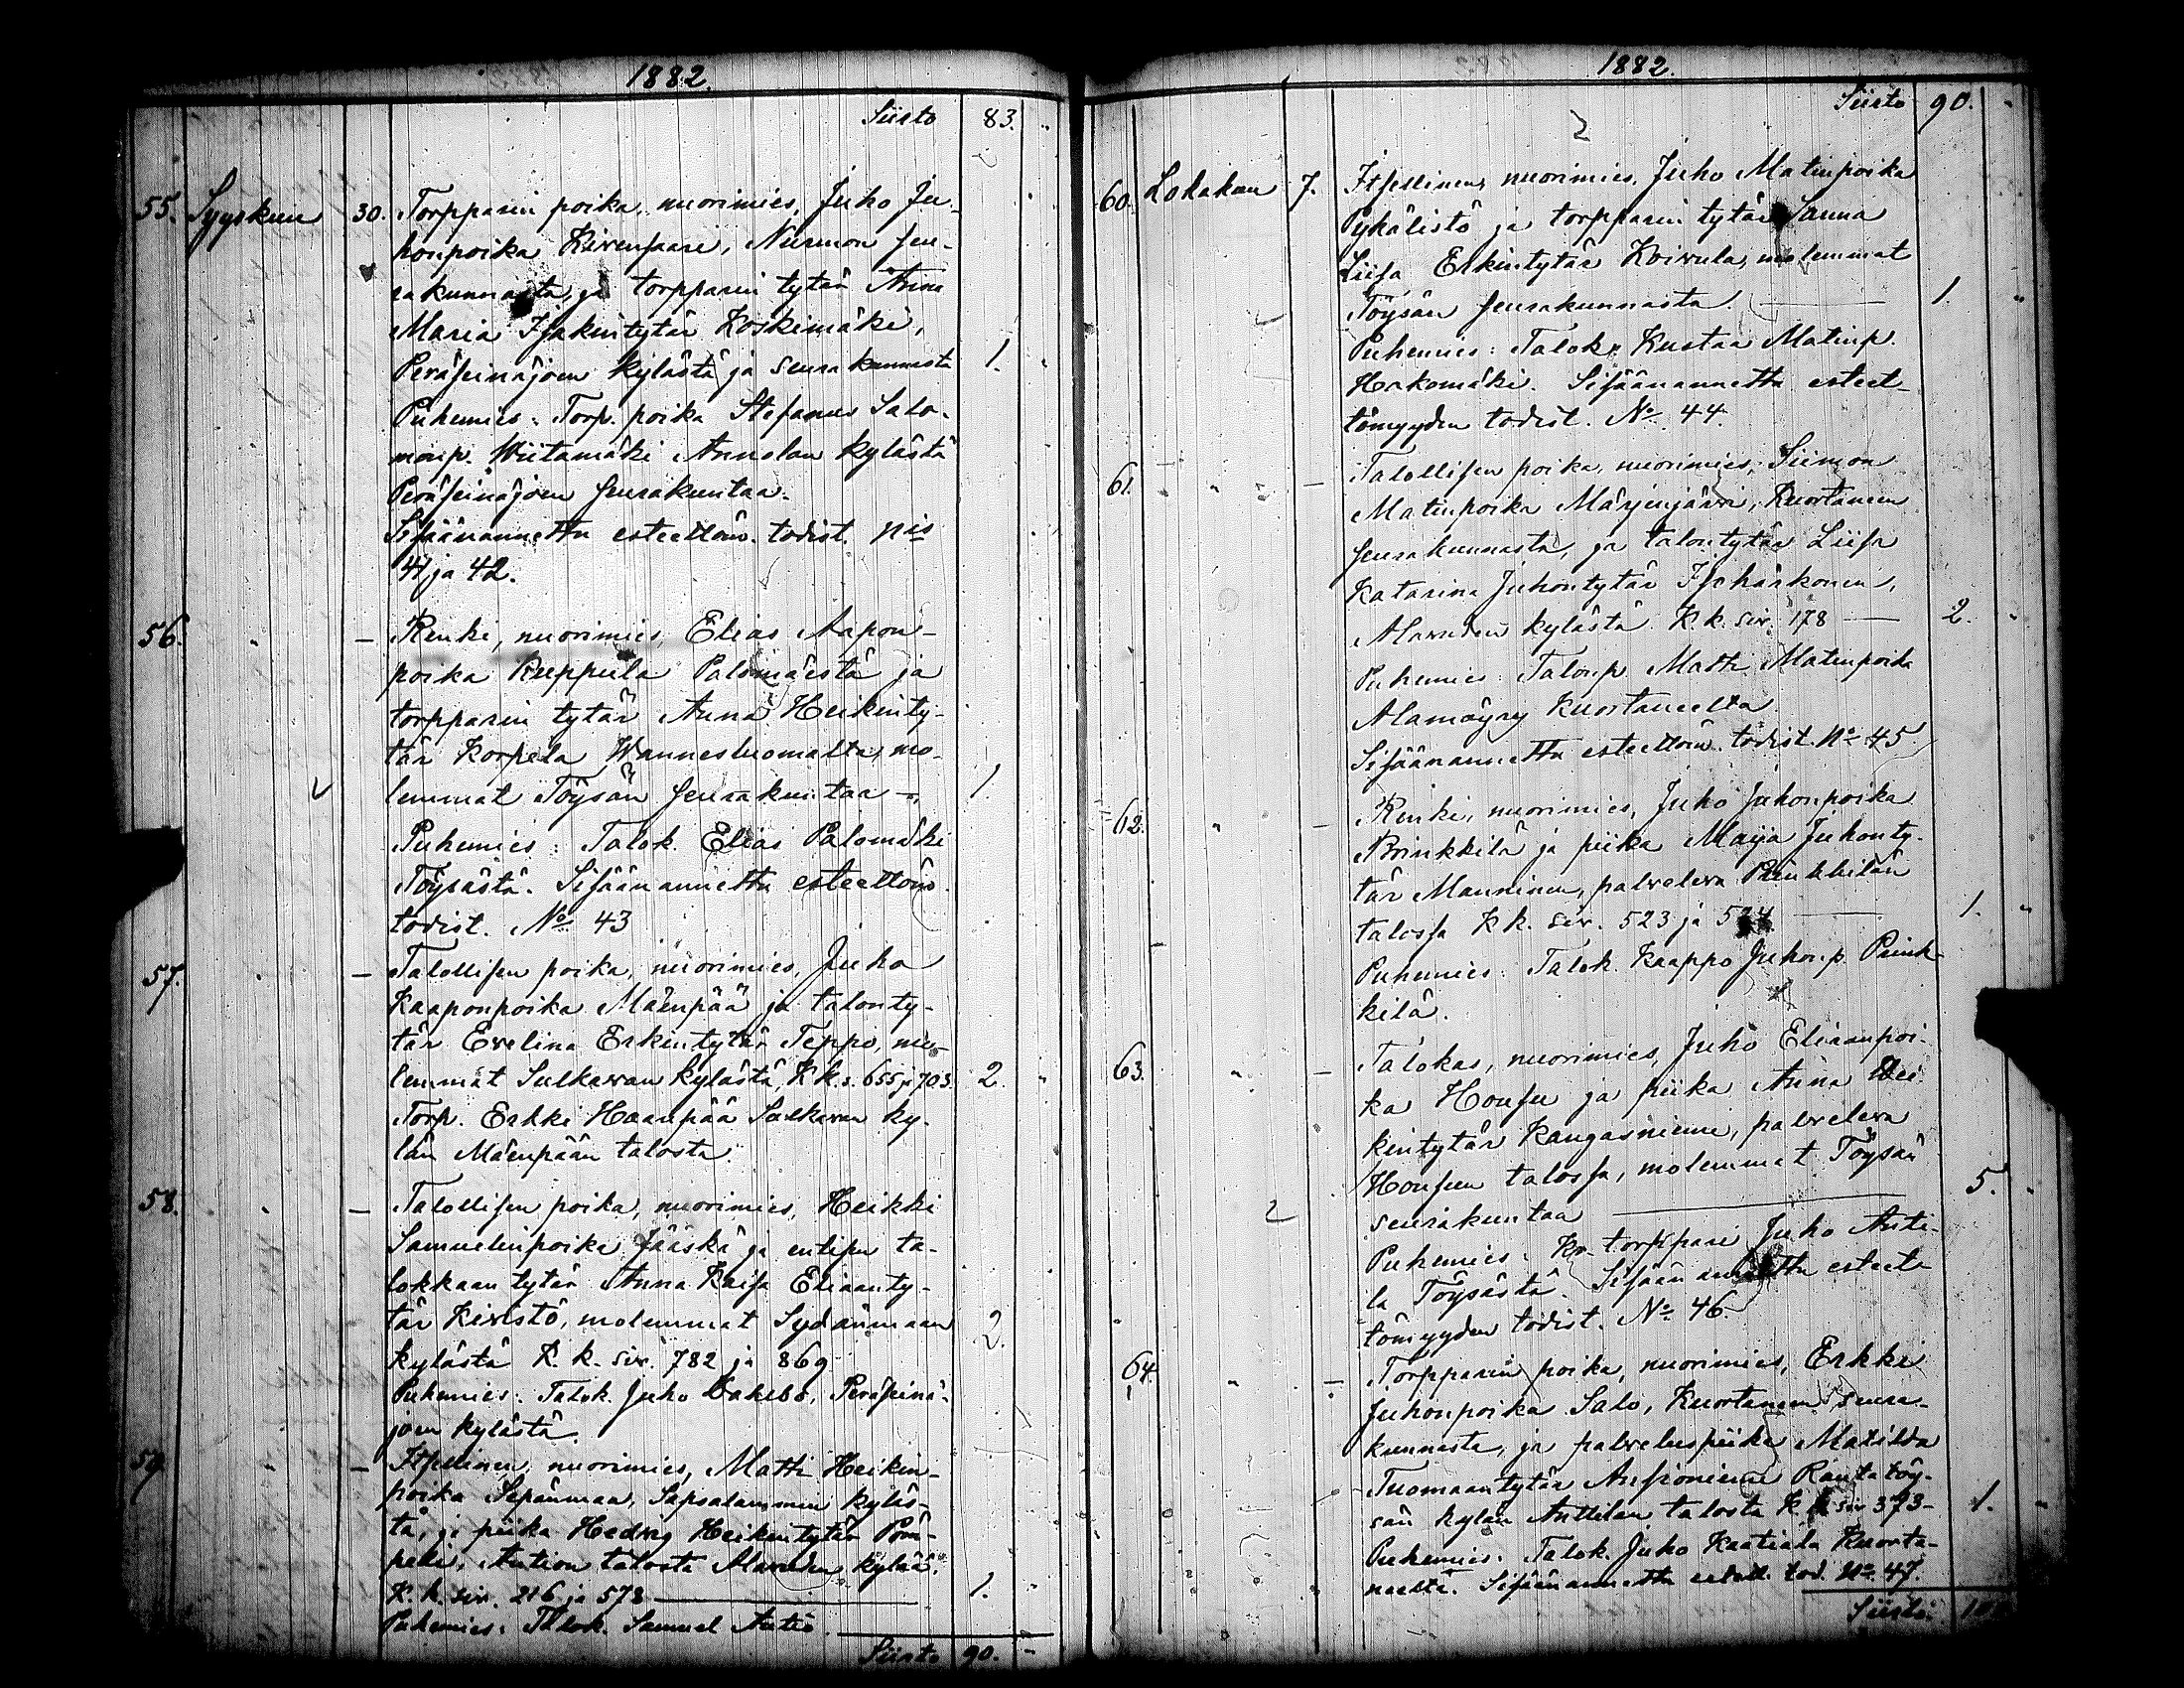 1882.
Siirto 83.
55. Syyskuun 30. Torpparin poika, nuorimies, Juho Ju-
honpoika Kivensaari, Nurmon seu-
rakunnasta, ja torpparin tytär Anna
Maria Isakintytär Koskimäki,
Peräseinäjoen kylästä ja seurakunnasta 1.
Puhemies: Torp. poika Stefanus Salo-
monp. Wiitamäki Annolan kylästä
Peräseinäjoen seurakuntaa.
Sisäänannettu esteettöm. todist. Nis
41 ja 42.
56. " — Renki, nuorimies Elias Aapon-
poika Reppula Palomäestä ja
torpparin tytär Anna Heikinty-
tär Korpela Wannesluomalta, mo-
lemmat Töysän seurakuntaa — 1.
Puhemies: Talok. Elias Palomäki
Töysästä. Sisäänannettu esteettöm.
todist. No 43
57. " — Talollisen poika, nuorimies, Juho
Kaaponpoika Mäenpää ja talonty-
tär Evelina Erkintytär Teppo, mo-
lemmat Sulkavan kylästä, K.k.s. 655 ja 703. 2.
Torp. Erkki Haanpää Sulkavan ky-
län Mäenpään talosta.
58. " — Talollisen poika, nuorimies, Heikki
Samuelinpoika Jääskä ja entisen ta-
lokkaan tytär Anna Kaisa Elianty-
tär Kivistö, molemmat Sydänmaan 2.
kylästä K. k. siv. 782 ja 869
Puhemies: Talok. Juho Peräseinä-
joen kylästä.
59. " — Itsellinen, nuorimies, Matti Heikin-
poika Sepänmaa, Sapsalammin kyläs-
tä, ja piika Hedvig Heikintytär
Aution talosta Alavuden kylää.
K. k. siv. 216 ja 578 — 1.
Puhemies: Talok. Samuel Autio.
Siirto 90.
1882.
Siirto 90.
60. Lokakuun 7. Itsellinen, nuorimies, Juho Matinpoika
Pykälistö ja torpparin tytär Sanna
Liisa Erkintytär Koivula, molemmat
Töysän seurakunnasta. — 1.
Puhemies: Talok. Kustaa Matinp.
Hakomäki. Sisäänannettu esteet-
tömyyden todist. No 44.
61. " — Talollisen poika, nuorimies, Siimon
Matinpoika Märjenjärvi, Kuortaneen
seurakunnasta, ja talontytär Liisa
Katarina Juhontytär Isohärkönen,
Alavuden kylästä K. k. siv. 178 — 2.
Puhemies: Talonp. Matti Matinpoika
Alamäyry Kuortaneelta
Sisäänannettu esteettöm. todist. No 45
62. " — Renki, nuorimies, Juho Juhonpoika
Prinkkilä ja piika Maija Juhonty-
tär Manninen, palveleva Prinkkilän
talossa K k. siv. 523 ja 524 — 1.
Puhemies: Talok. Kaappo Juhonp. Prink-
kilä.
63. " — Talokas, nuorimies, Juho Elianpoi-
ka Honsu ja piika Anna Hei-
kintytär Kangasniemi, palveleva
Honsun talossa, molemmat Töysän
seurakuntaa — 5.
Puhemies: Kr. torppari Juho Anti-
la Töysästä. Sisäänannettu esteet-
tömyyden todist. No 46
64. " — Torpparin poika, nuorimies, Erkki
Juhonpoika Salo, Kuortaneen seura-
kunnasta, ja palveluspiika Matilda
Tuomaantytär Ansioniemi Rantatöy-
sän kylän Anttilan talosta K k siv 373 — 1.
Puhemies: Talok. Juho Kaatiala Kuorta-
neelta. Sisäänannettu esteett. tod. No 47.
Siirto